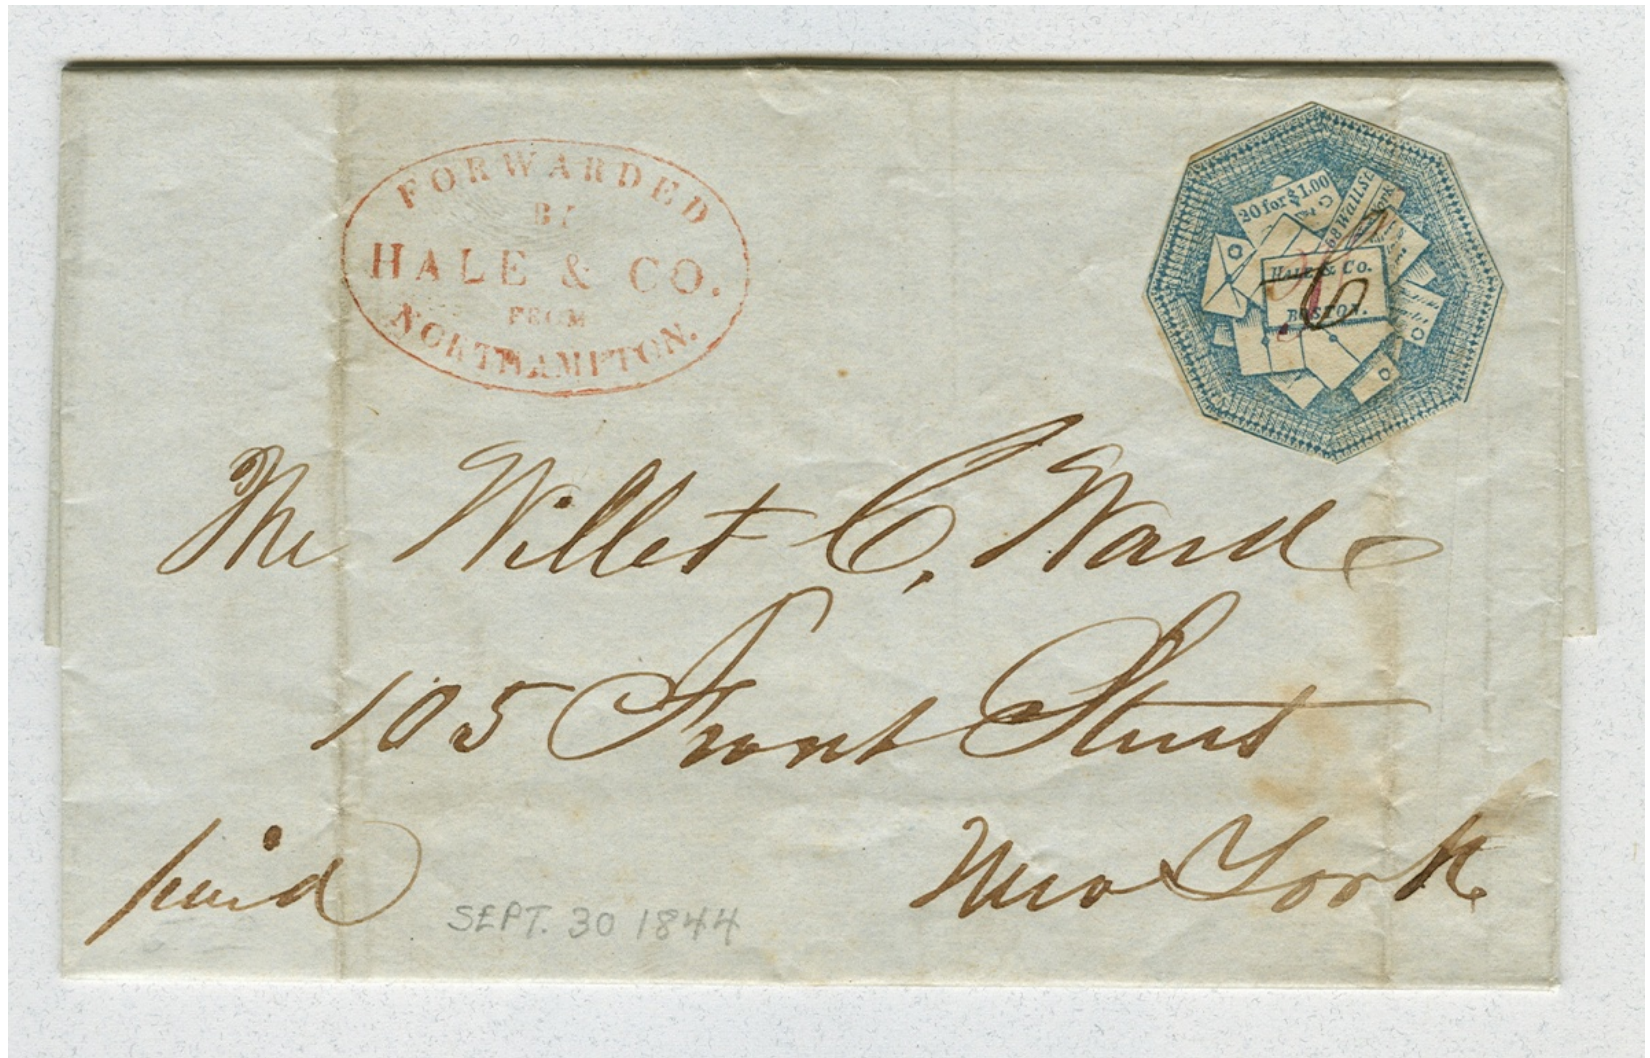 FORWARDED
BY
HALE & CO.
FROM
NORTHAMPTON.
20 for $1.00
68 Wall St
HALE & Co.
BOSTON.
Mr Willet C. Ward
105 Front Street
New York
paid
SEPT. 30 1844